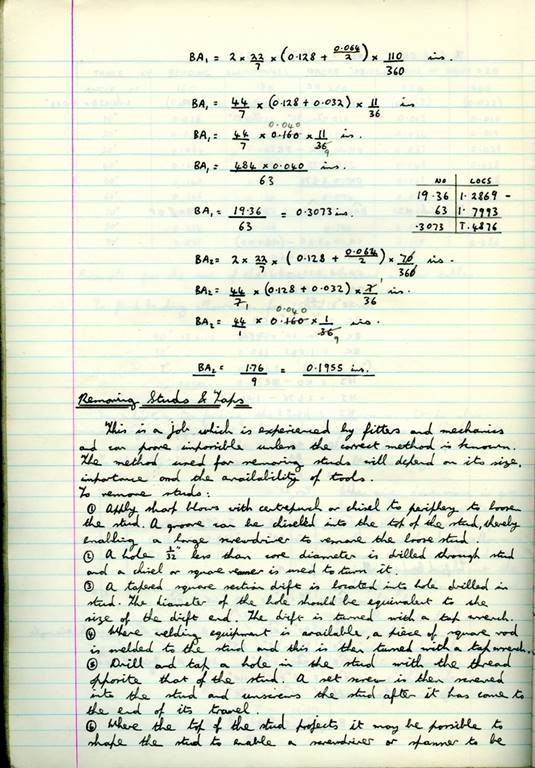 BA₁ = 2 × 22/7 × (0.128 + 0.064/2) × 110/360 ins.
BA₁ = 44/7 × (0.128 + 0.032) × 11/36 ins
0.040
BA₁ = 44/7 × 0.160 × 11/36 9 ins.
BA₁ = 484 × 0.040/63 ins.
NO LOGS
19.36 1.2869 -
63 1.7993
.3073 T.4876
BA₁ = 19.36/63 = 0.3073 ins.
BA₂ = 2 × 22/7 × (0.128 + 0.064/2) × 70/360 ins.
BA₂ = 44/7 1 × (0.128 + 0.032) × 7 1/36 ins.
0.040
BA₂ = 44/1 × 0.160 × 1/36 9 ins.
BA₂ = 1.76/9 = 0.1955 ins.
Removing Studs & Taps
This is a job which is experienced by fitters and mechanics
and can prove impossible unless the correct method is known.
The method used for removing studs will depend on its size,
importance and the availability of tools.
To remove studs:
① Apply sharp blows with centrepunch or chisel to periphery to loosen
the stud. A groove can be chiselled into the top of the stud, thereby
enabling a large screwdriver to remove the loose stud.
② A hole 1/32" less than core diameter is drilled through stud
and a chisel or square reamer is used to turn it.
③ A tapered square section drift is located into hole drilled in
stud. The diameter of the hole should be equivalent to the
size of the drift end. The drift is turned with a tap wrench.
④ Where welding equipment is available, a piece of square rod
is welded to the stud and this is then turned with a tap wrench.
⑤ Drill and tap a hole in the stud with the thread
opposite that of the stud. A set screw is then screwed
into the stud and unscrews the stud after it has come to
the end of its travel.
⑥ Where the top of the stud projects it may be possible to
shape the stud to enable a screwdriver or spanner to be